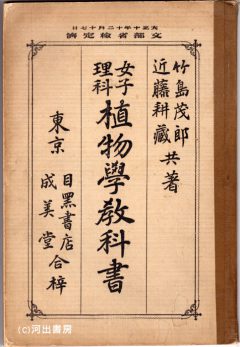 大正十年十二月十七日
文部省検定済
竹島茂郎
近藤耕藏
共著
女子
理科
植物學教科書
東京
目黑書店
成美堂
合梓
(c)河出書房